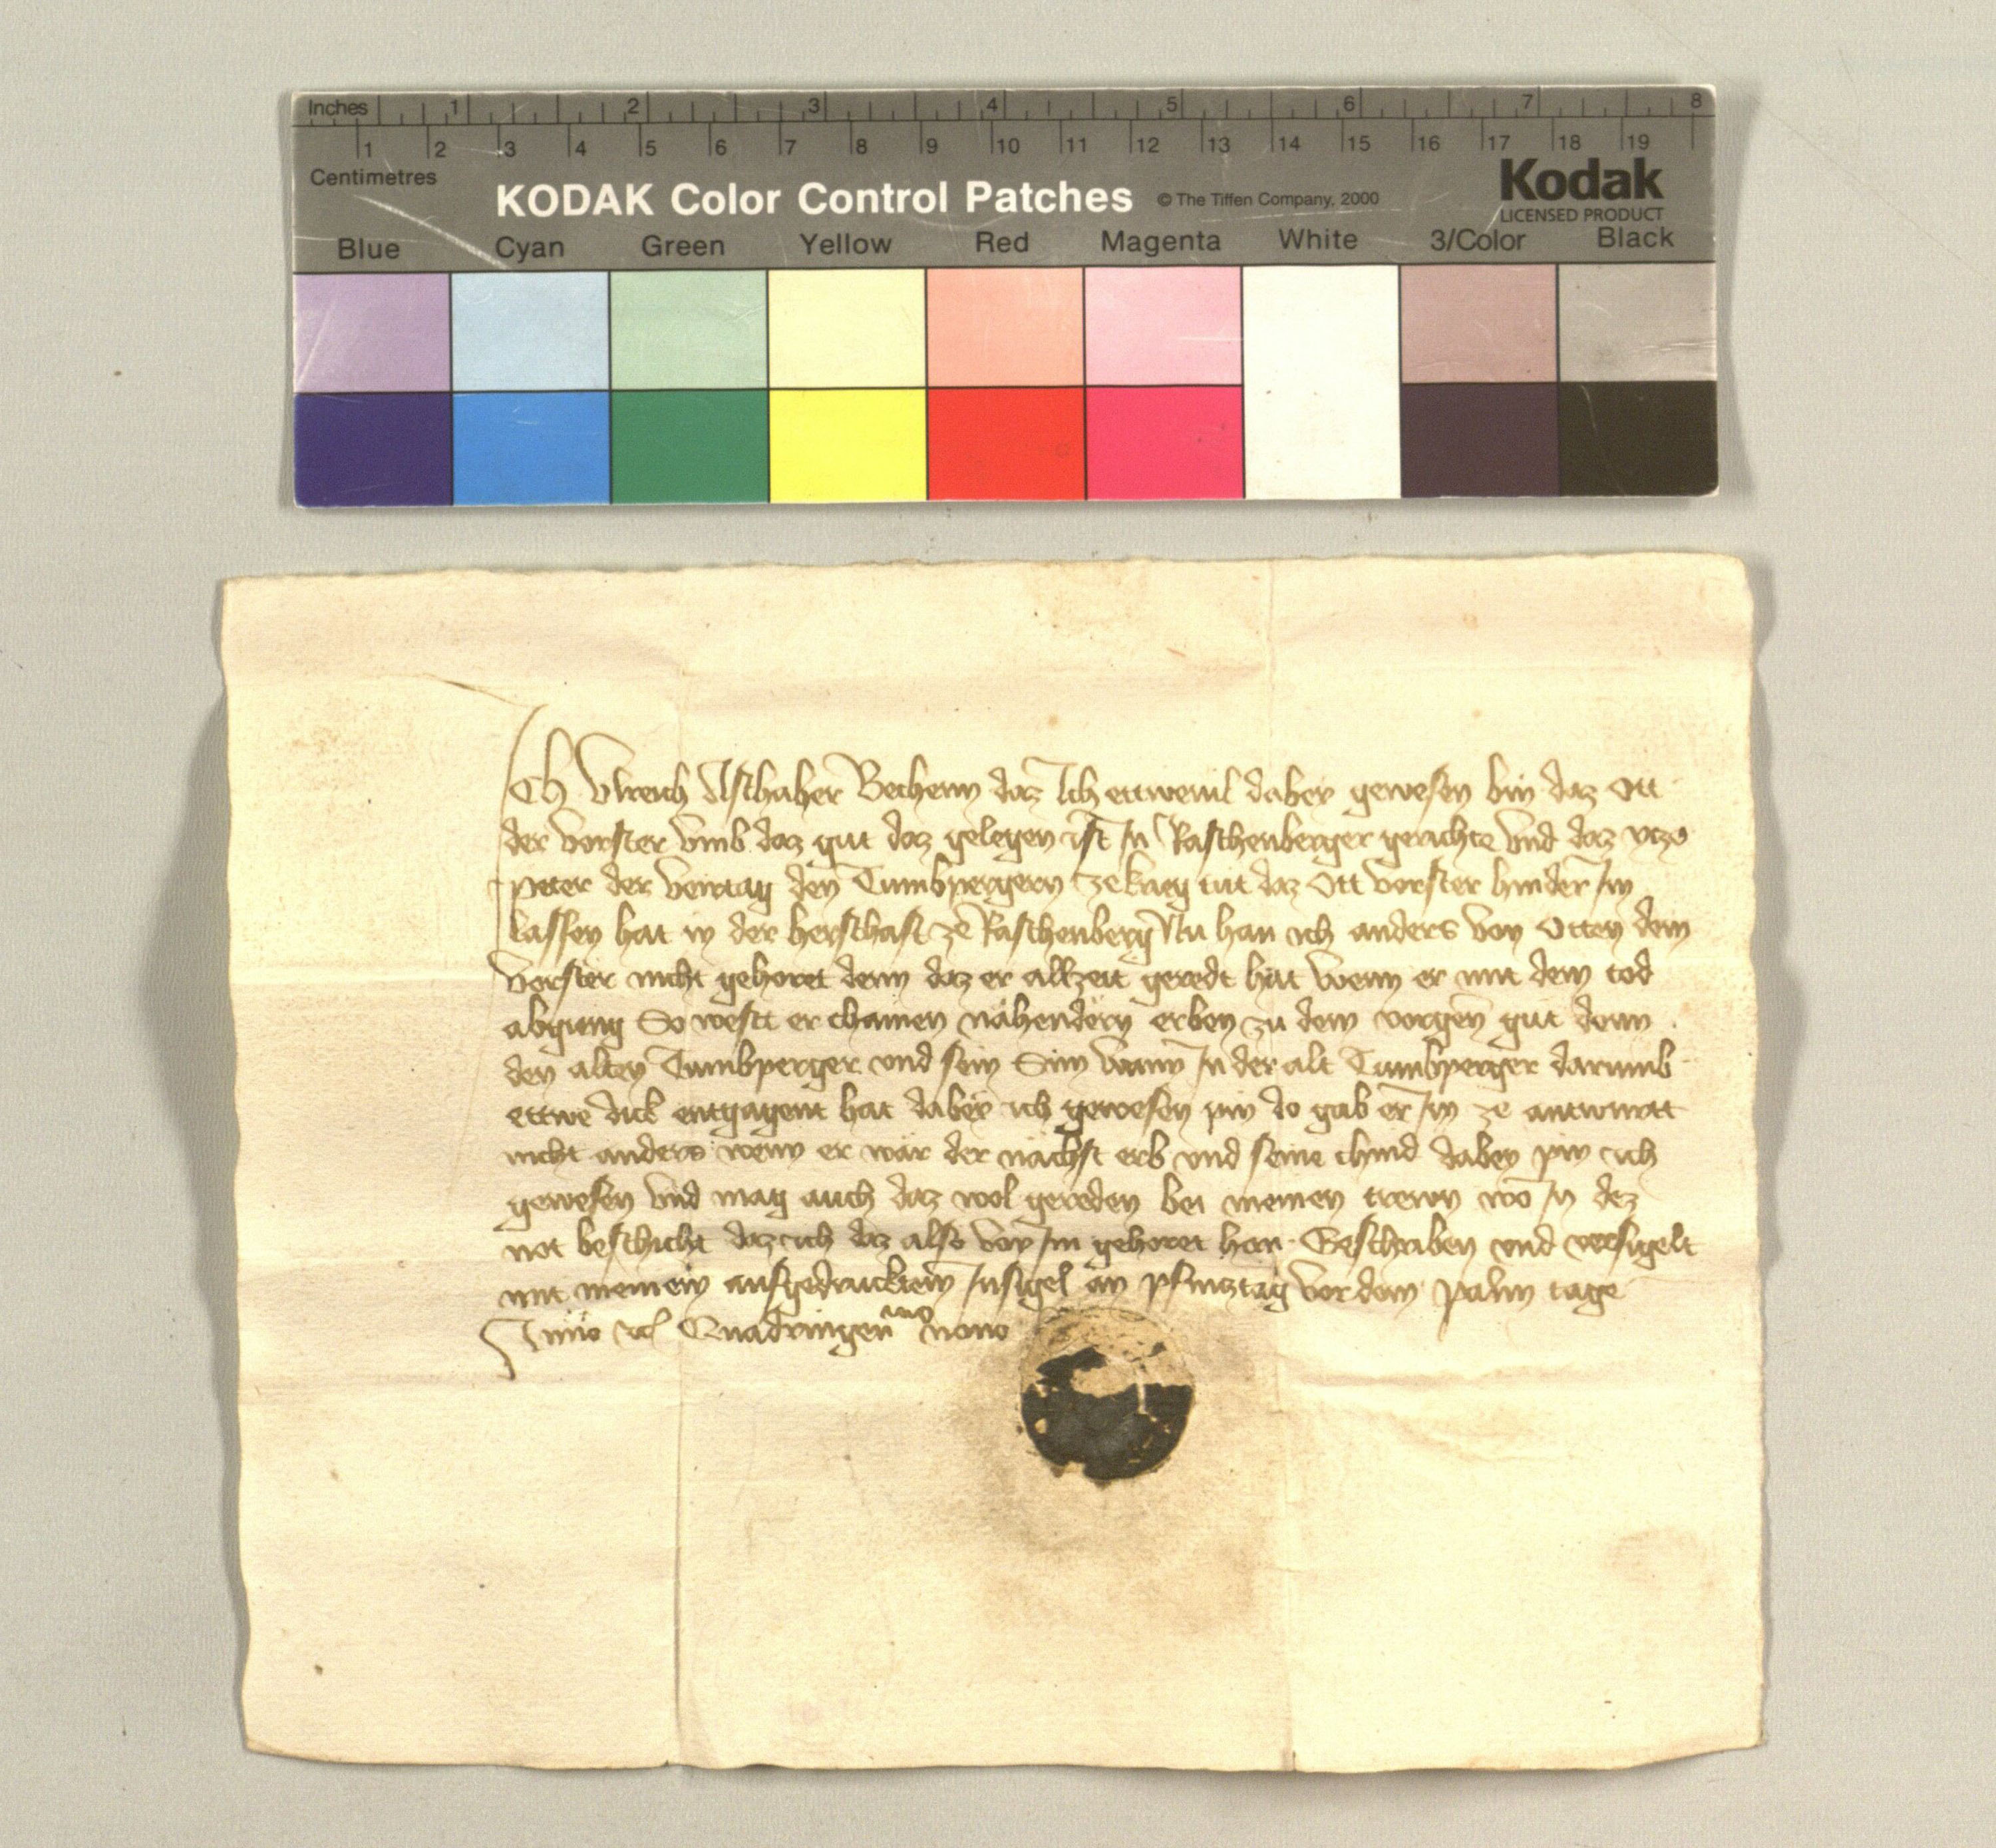 Inches 1 2 3 4 5 6 7 8
1 2 3 4 5 6 7 8 9 10 11 12 13 14 15 16 17 18 19
Centimetres
KODAK Color Control Patches © The Tiffen Company, 2000 Kodak
LICENSED PRODUCT
Blue Cyan Green Yellow Red Magenta White 3/Color Black
Ich Ulreich Asthaber Vechenn daz Ich ettweuil dabey gewesen bin daz Ott
der vorster vmb daz gut daz gelegen ist In Raschenberger gerichte vnd daz yczo
peter der veirtag den Tumbpergern ze krieg tut daz Ott vorster hinder Im
lassen hat in der herschaft ze Raschenberg Nu han ich anders von Otten dem
vorster nicht gehoret denn daz er allzeit geredt hat wenn er mit dem tod
abgieng So westt er chainen nähendern erben zu dem vorgen gut denn
den alten Tumbperger vnd sein Sün wann In der alt Tumbperger darumb
ettwe dick entgagent hat dabey ich gewesen pin do gab er Im ze antwurtt
nicht anders wenn er wär der nächst erb vnd seine chind dabey pin ich
gewesen vnd mag auch daz wol gereden bei meinen trewn wo In dez
not beschicht daz ich daz also von Im gehoret han Geschriben vnd versigelt
mit meinem aufgedrucktem Insigel an pfinztag vor dem palm tage
Anno etc Quadringenmo nono